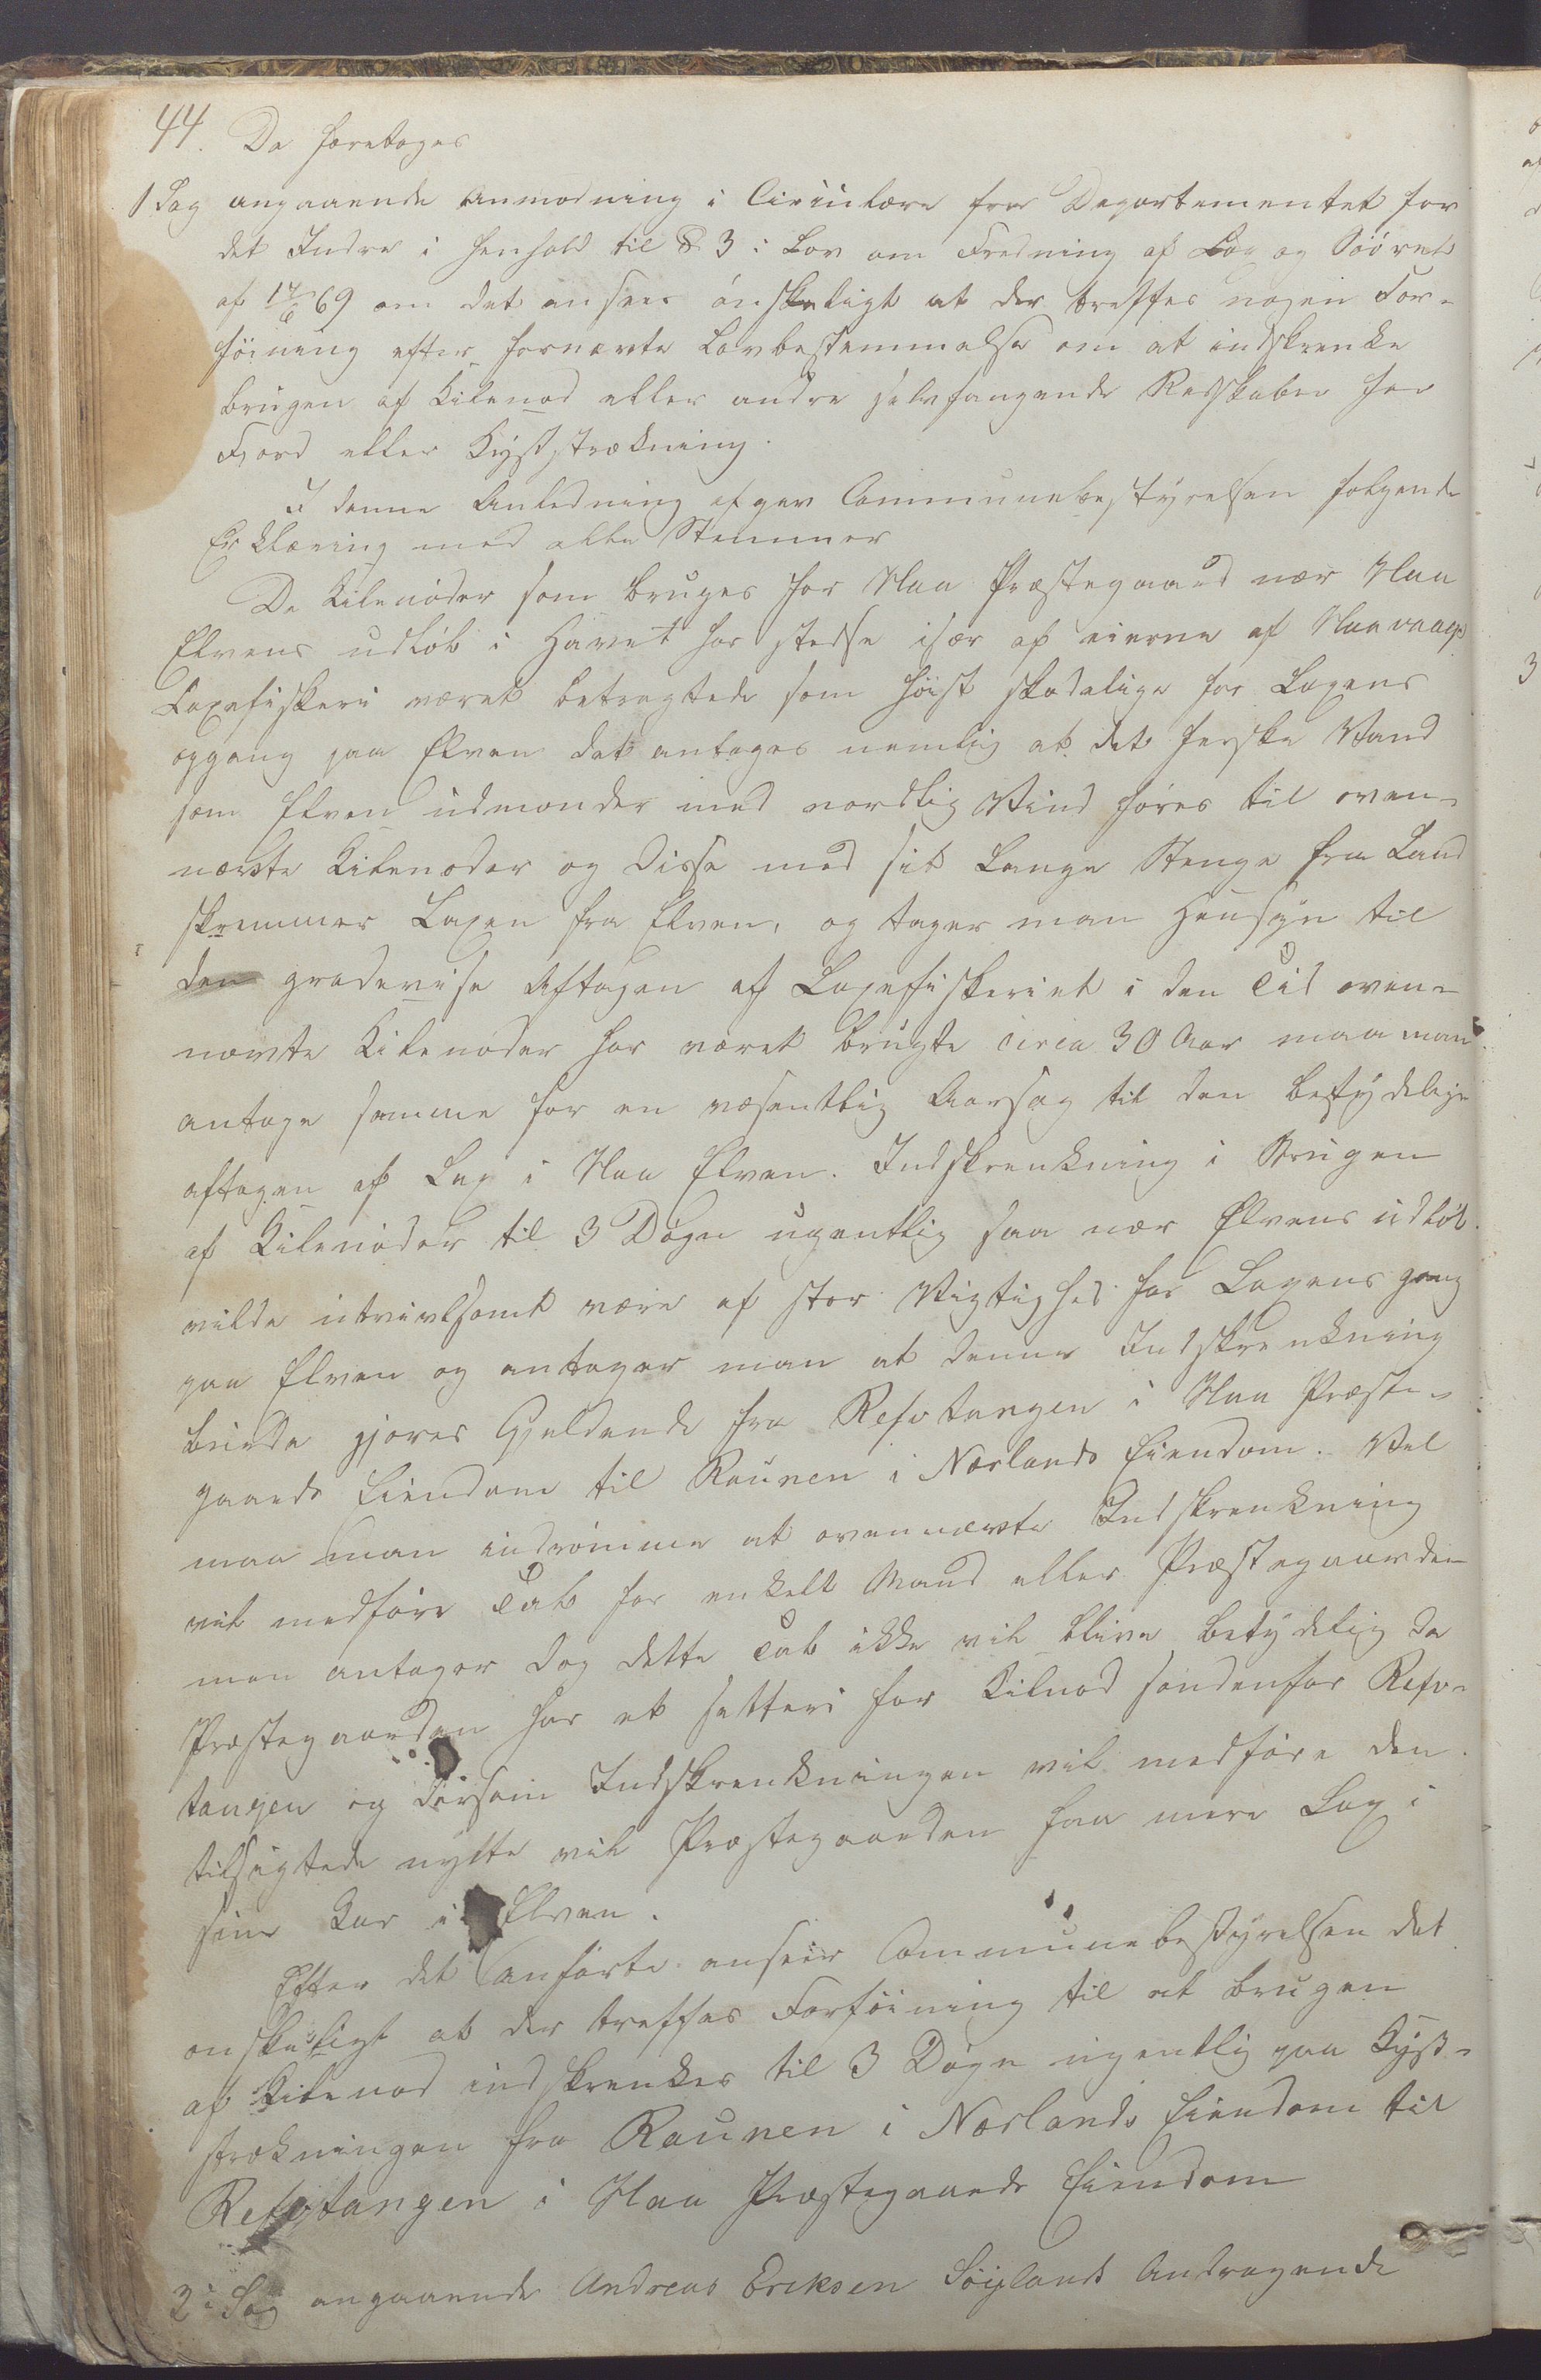 44. De foretoges
1 Sag angaaende Anmodning i Circulære fra Departementet for
det Indre i Henhold til § 3 i Lov om Fredning af Lax og Söörret
af 17/6 69 om det ansees ónskeligt at der treffes nogen For-
föining efter fornevnte Lovbestemmelse om at indskrenke
brugen af Kilenod eller andre selvfangende Redskaber for
Fjord eller Kyststrækning.
I denne Anledning afgav Communebestyrelsen folgende
Erklæring med alle Stemmer
De Kilenöder som bruges for Haa Præstegaard nær Haa
Elvens udlöb i Havet har stedse især af eierne af Haavaags
Laxefiskeri været betragtede som höist skadelige for Laxens
opgang paa Elven det antages nemlig at det ferske Vand
som Elven udmonder med nordlig Vind föres til oven-
nævnte Kilenoder og disse med sit lange Stenge fra Land
skremmer Laxen fra Elven, og tager man Hensyn til
den gradevise Aftagen af Laxefiskeriet i den Tid oven-
nævnte Kilenoder har været brugte circa 30 Aar maa man
antage samme for en væsentlig Aarsag til den betydelige
aftagen af Lax i Haa Elven. Indskrenkning i Brugen
af Kilenöder til 3 Dögn ugentlig saa nær Elvens udlöb
vilde utvivlsomt være af stor Vigtighed for Laxens gang
paa Elven og antager man at denne Indskrenkning
burde gjöres Gjeldende fra Refstangen i Haa Præste-
gaards Eiendom til Raunen i Nærlands Eiendom. Vel
maa man indrömme at ovennævnte Indskrenkning
vil medföre Tab for enkelt Mand eller Præstegaarden
men antager dog dette Tab ikke vil blive betydelig da
Præstegaarden har et setteri for Kilnod söndenfor Refs-
tangen og dersom Indskrenkningen vil medföre den
tilsigtede nytte vil Præstegaarden faa mere Lax i
sine Kar i Elven.
Efter det anförte anseer Communebestyrelsen det
onskeligt at der treffes Forföining til at brugen
af Kilenod indskrenkes til 3 Dögn ugentlig paa Kyst-
strækningen fra Raunen i Nærlands Eiendom til
Refstangen i Haa Præstegaards Eiendom
2: Sag angaaende Andreas Eriksen Söiglands Andragende